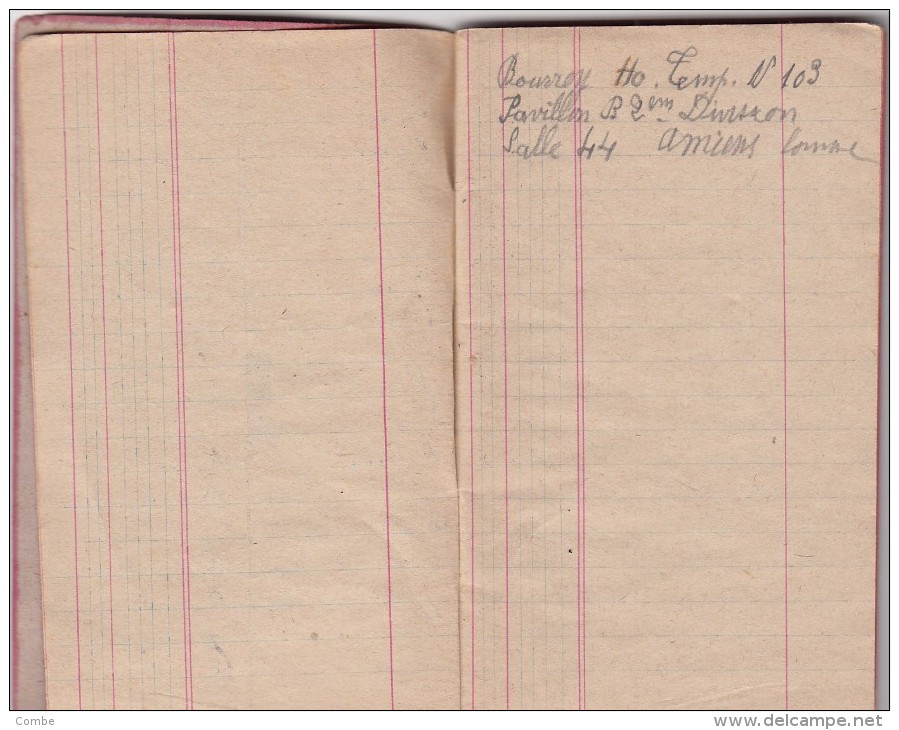 Bourrey Ho. Temp. N 103
Pavillon B 2em Division
Salle 44 Amiens Somme
Combe
www.delcampe.net